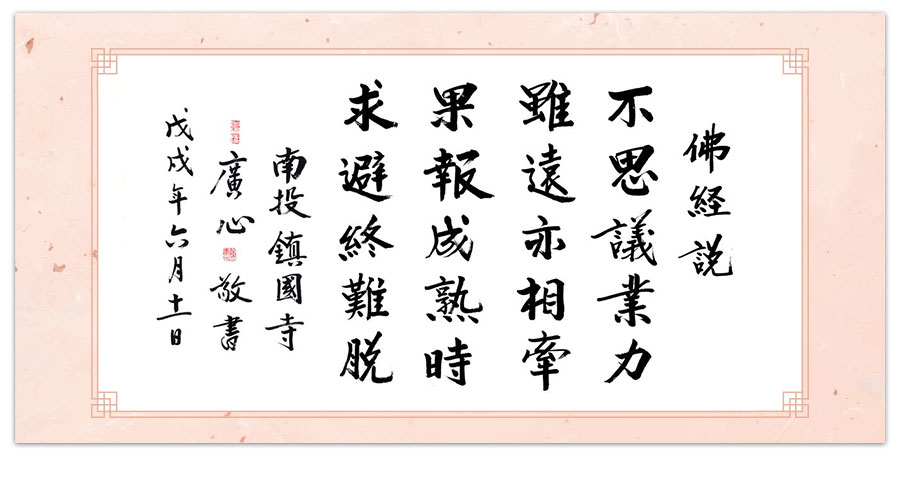 佛經説
不思議業力
雖遠亦相牽
果報成熟時
求避終難脫
南投鎮國寺
廣心敬書
戊戌年六月十一日